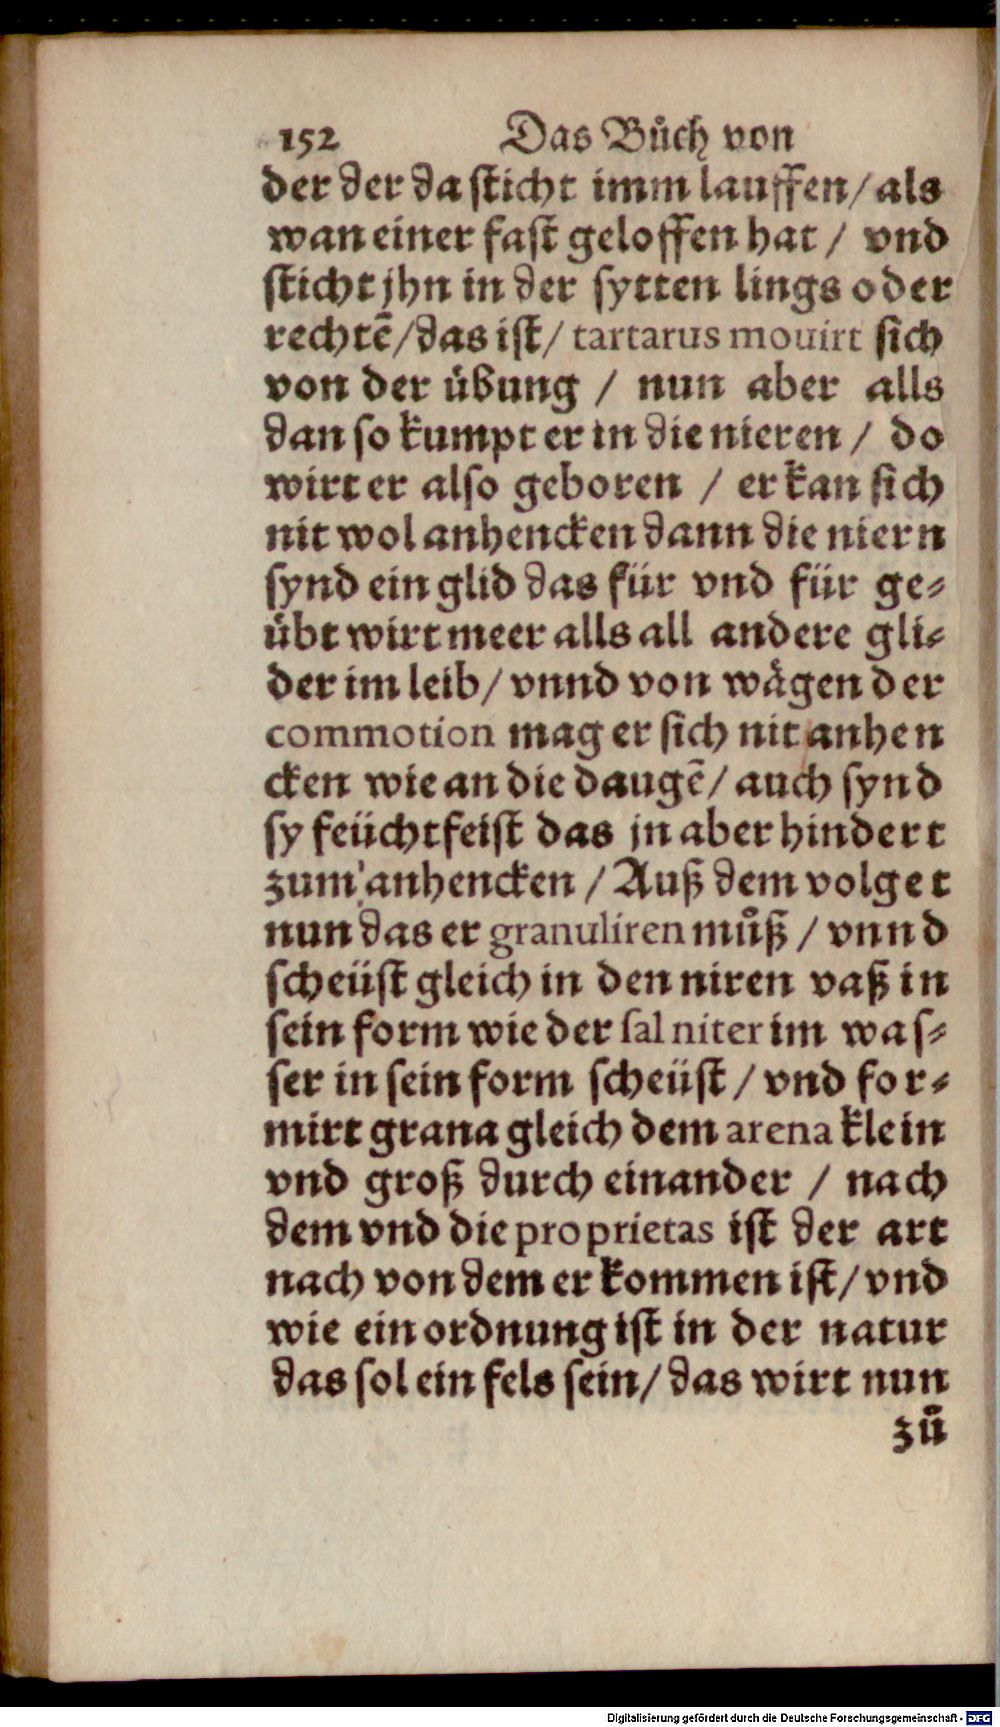 152 Das Bůch von
der der da sticht imm lauffen/ als
wan einer fast geloffen hat / vnd
sticht jhn in der sytten lings oder
rechtē/das ist/ tartarus mouirt sich
von der übung / nun aber alls
dan so kumpt er in die nieren / do
wirt er also geboren / er kan sich
nit wol anhencken dann die niern
synd ein glid das für vnd für ge⸗
übt wirt meer alls all andere gli⸗
der im leib/ vnnd von wägen der
commotion mag er sich nit anhen
cken wie an die daugē/ auch synd
sy feücht feist das jn aber hindert
zum anhencken / Auß dem volget
nun das er granuliren můß / vnnd
scheüst gleich in den niren vaß in
sein form wie der sal niter im was⸗
ser in sein form scheüst / vnd for⸗
mirt grana gleich dem arena klein
vnd groß durch einander / nach
dem vnd die proprietas ist der art
nach von dem er kommen ist/ vnd
wie ein ordnung ist in der natur
das sol ein fels sein/ das wirt nun
zů
Digitalisierung gefördert durch die Deutsche Forschungsgemeinschaft - DFG